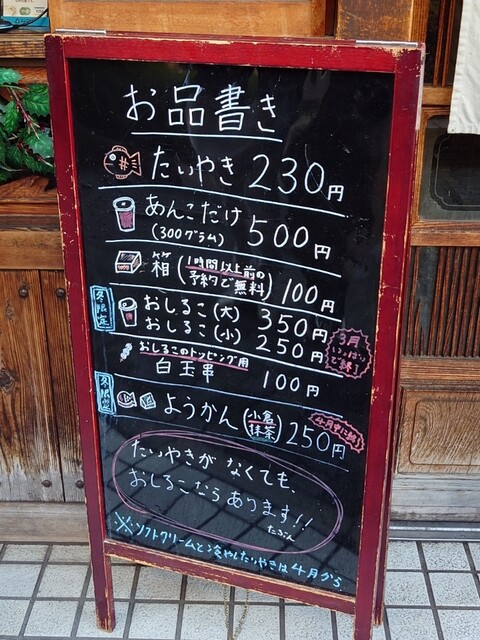 お品書き
たいやき 230円
あんこだけ
(300グラム) 500円
箱 (1時間以上前の
予約で無料) 100円
冬限定
おしるこ(大) 350円
おしるこ(小) 250円
3月
終了
おしるこのトッピング用
白玉串 100円
冬限定
ようかん (小倉
抹茶) 250円
たいやきが なくても、
おしるこならあります!!
たぶん
※ソフトクリームと冷やしたいやきは4月から